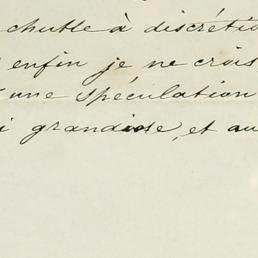 chuble à discrétio
enfin je ne crois
une spéculation
i grandiose, et au